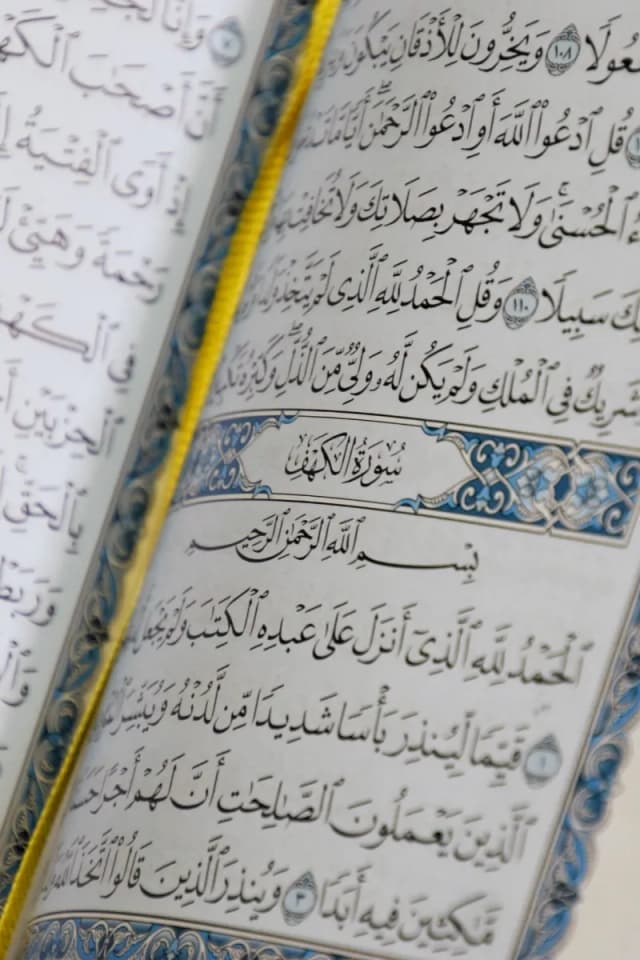 ١٠٨ وَيَخِرُّونَ لِلْأَذْقَانِ يَبْكُونَ
قُلِ ٱدْعُوا۟ ٱللَّهَ أَوِ ٱدْعُوا۟ ٱلرَّحْمَٰنَ أَيًّا مَّا
ٱلْحُسْنَىٰ وَلَا تَجْهَرْ بِصَلَاتِكَ وَلَا تُخَافِتْ بِهَا
سَبِيلًا ١١٠ وَقُلِ ٱلْحَمْدُ لِلَّهِ ٱلَّذِى لَمْ يَتَّخِذْ
شَرِيكٌ فِى ٱلْمُلْكِ وَلَمْ يَكُن لَّهُۥ وَلِىٌّ مِّنَ ٱلذُّلِّ وَكَبِّرْهُ
سُورَةُ الكَهْفِ
بِسْمِ ٱللَّهِ ٱلرَّحْمَٰنِ ٱلرَّحِيمِ
ٱلْحَمْدُ لِلَّهِ ٱلَّذِىٓ أَنزَلَ عَلَىٰ عَبْدِهِ ٱلْكِتَٰبَ وَلَمْ يَجْعَل
١ قَيِّمًا لِّيُنذِرَ بَأْسًا شَدِيدًا مِّن لَّدُنْهُ وَيُبَشِّرَ
ٱلَّذِينَ يَعْمَلُونَ ٱلصَّٰلِحَٰتِ أَنَّ لَهُمْ أَجْرًا
مَّٰكِثِينَ فِيهِ أَبَدًا ٣ وَيُنذِرَ ٱلَّذِينَ قَالُوا۟ ٱتَّخَذَ ٱللَّهُ
وَإِنَّا
أَنَّ أَصْحَٰبَ ٱلْكَهْ
أَوَى ٱلْفِتْيَةُ
رَحْمَةً وَهَيِّئْ
فِى ٱلْكَهْ
ٱلْحِزْبَيْنِ
بِٱلْحَقِّ